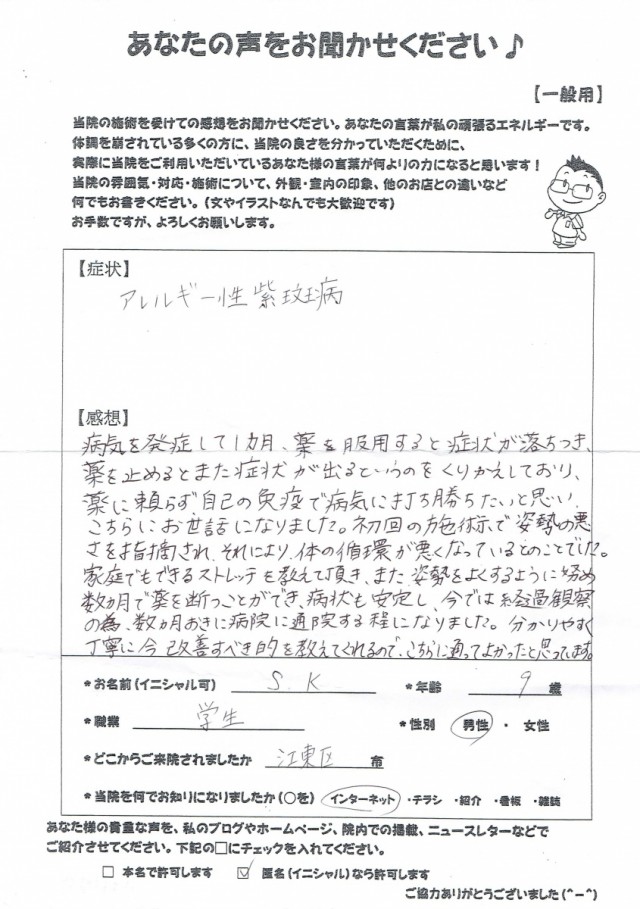 あなたの声をお聞かせください♪
【一般用】
当院の施術を受けての感想をお聞かせください。あなたの言葉が私の頑張るエネルギーです。
体調を崩されている多くの方に、当院の良さを分かっていただくために、
実際に当院をご利用いただいているあなた様の言葉が何よりの力になると思います!
当院の雰囲気・対応・施術について、外観・室内の印象、他のお店との違いなど
何でもお書きください。(文やイラストなんでも大歓迎です)
お手数ですが、よろしくお願いします。
【症状】
アレルギー性紫斑病
【感想】
病気を発症して1カ月、薬を服用すると症状が落ちつき、
薬を止めるとまた症状が出るというのをくりかえしており、
薬に頼らず自己の免疫で病気に打ち勝ちたいと思い
こちらにお世話になりました。初回の施術で姿勢の悪
さを指摘され、それにより、体の循環が悪くなっているとのことでした。
家庭でもできるストレッチを教えて頂き、また姿勢をよくするように努め
数カ月で薬を断つことができ、病状も安定し、今では経過観察
の為、数カ月おきに病院に通院する程になりました。分かりやすく
丁寧に今改善すべき的を教えてくれるので、こちらに通ってよかったと思ってます。
*お名前(イニシャル可) S.K *年齢 9 歳
*職業 学生 *性別 男性 ・ 女性
*どこからご来院されましたか 江東区 市
*当院を何でお知りになりましたか(○を) インターネット ・チラシ ・紹介 ・看板 ・雑誌
あなた様の貴重な声を、私のブログやホームページ、院内での掲載、ニュースレターなどで
ご紹介させてください。下記の□にチェックを入れてください。
□ 本名で許可します ☑ 匿名(イニシャル)なら許可します
ご協力ありがとうございました(^-^)